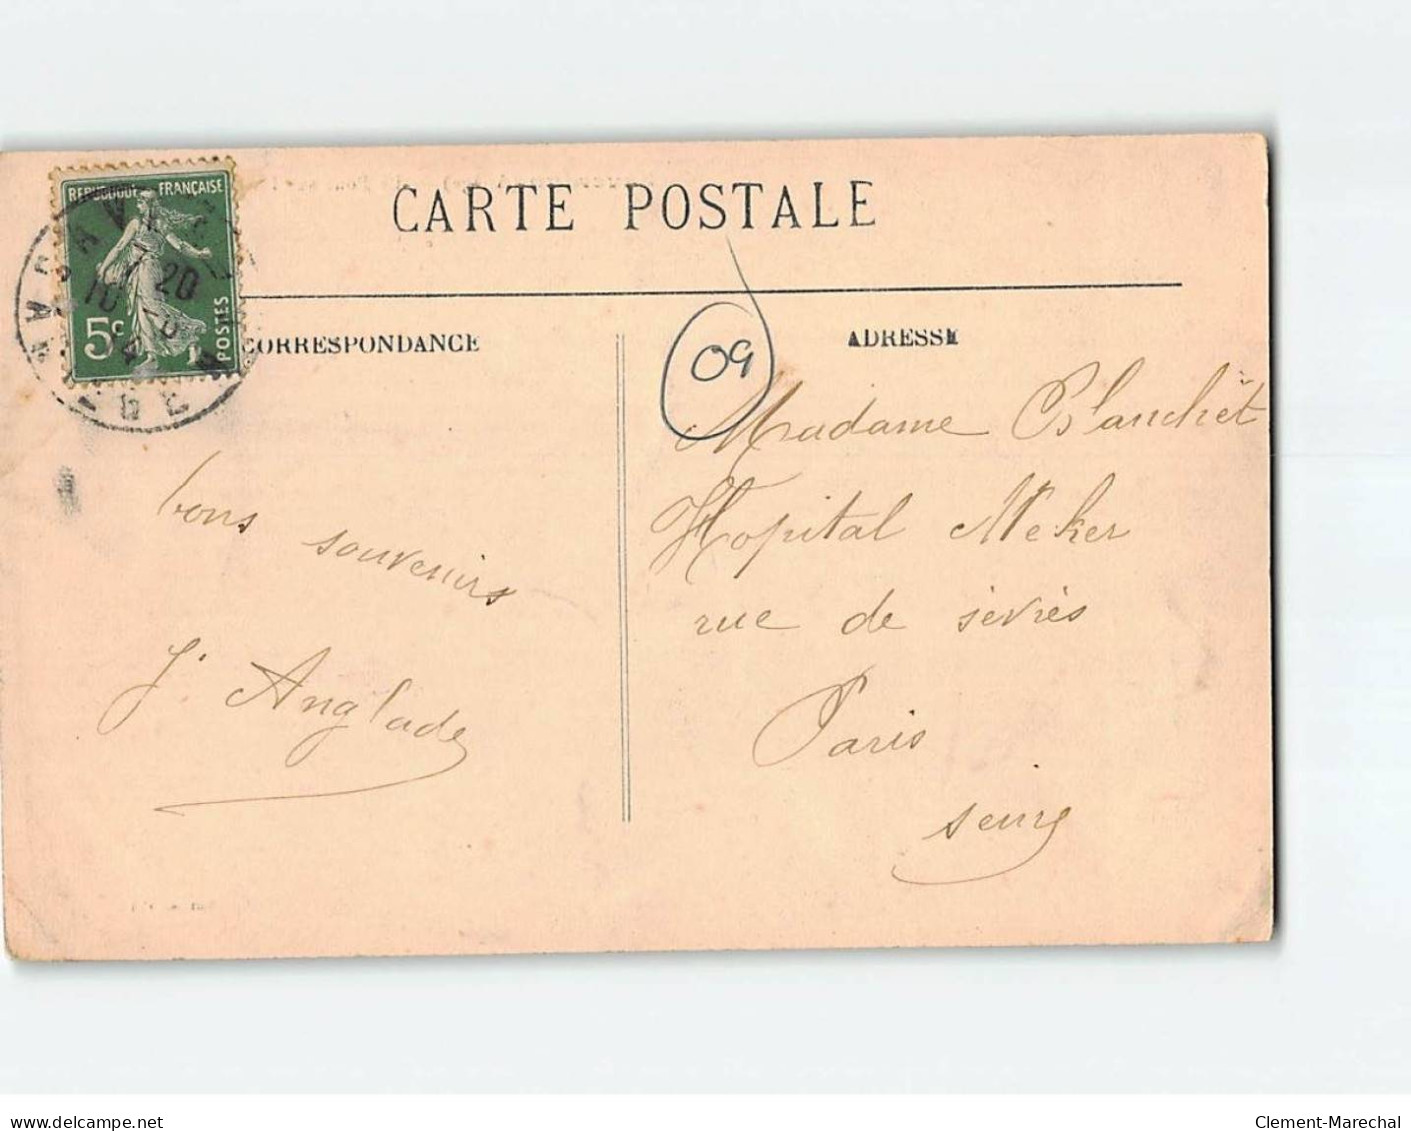 CARTE POSTALE
REPUBLIQUE FRANÇAISE
5c
POSTES
CORRESPONDANCE
ADRESSE
09
Madame Blanchet
Hopital Neker
rue de sèvres
Paris
seine
bons souvenirs
J. Anglade
www.delcampe.net
Clement-Marechal